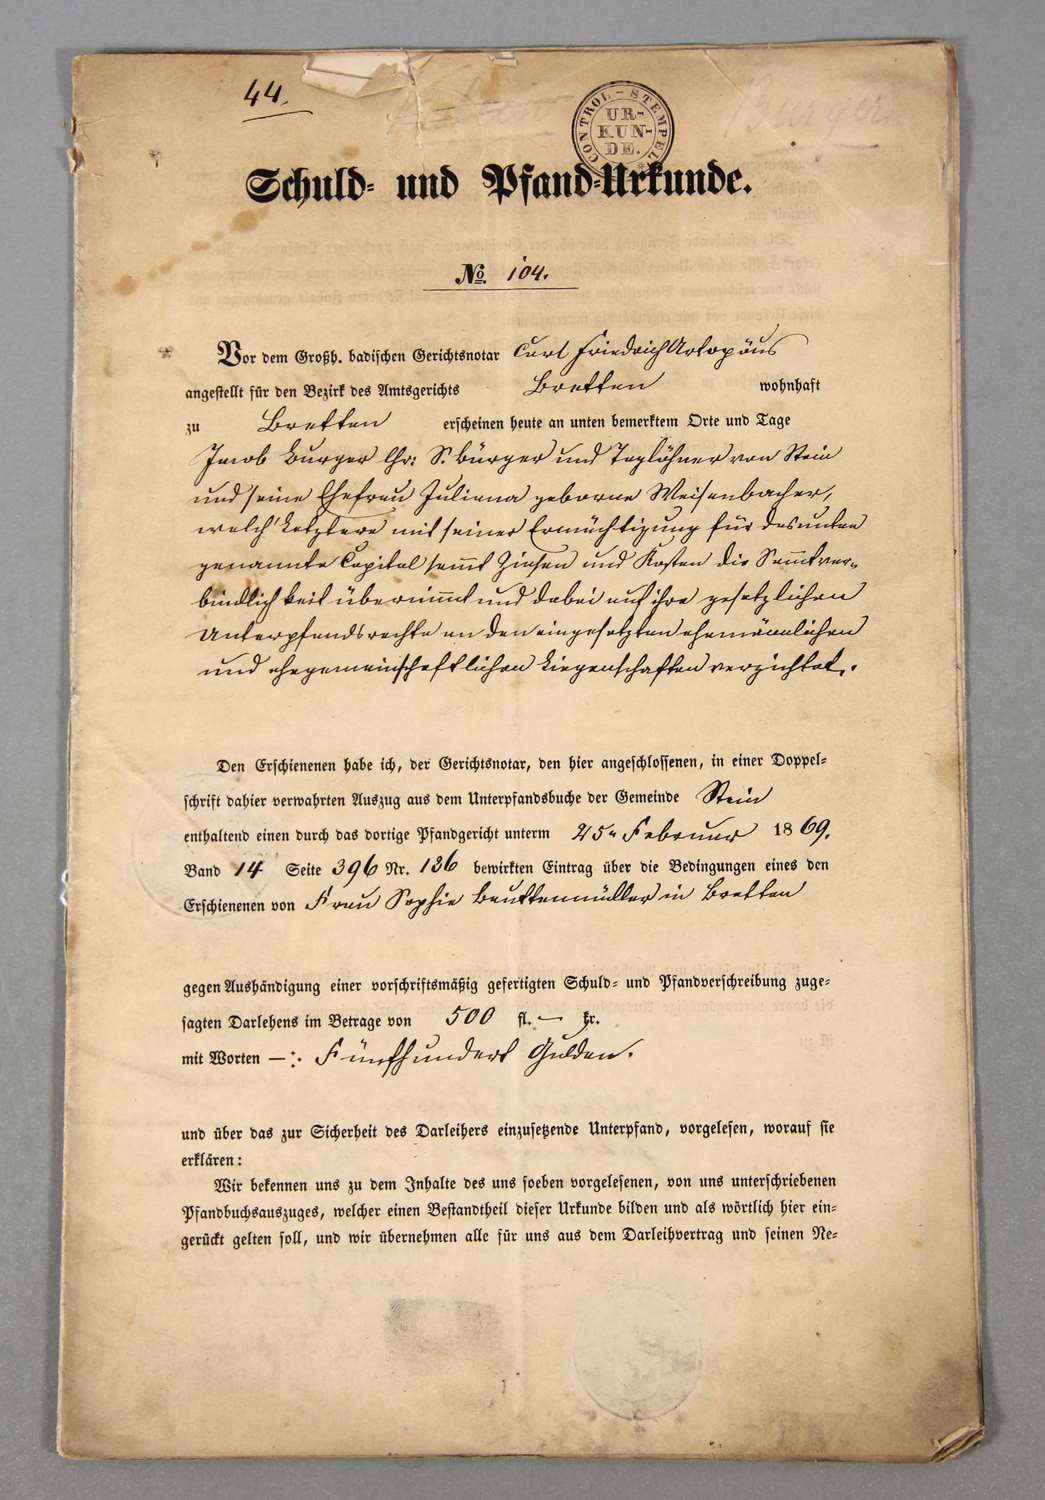 44.
Burger
CONTROL-STEMPEL
UR-
KUN-
DE.
Schuld- und Pfand-Urkunde.
No. 104.
Vor dem Großh. badischen Gerichtsnotar Curt Friedrich Artopöus
angestellt für den Bezirk des Amtsgerichts Bretten wohnhaft
zu Bretten erscheinen heute an unten bemerktem Orte und Tage
Jacob Burger Chr: S. bürger und Taglöhner von Stein
und seine Ehefrau Juliana geborne Weisenbacher,
welch' Letztere mit seiner Ermächtigung für das unten
genannte Capital sammt Zinsen und Kosten die Sammtver-
bindlichkeit übernimmt und dabei auf ihre gesetzlichen
Unterpfandsrechte an den eingesetzten ehemännlichen
und ehegemeinschaftlichen Liegenschaften verzichtet.
Den Erschienenen habe ich, der Gerichtsnotar, den hier angeschlossenen, in einer Doppel-
schrift dahier verwahrten Auszug aus dem Unterpfandsbuche der Gemeinde Stein
enthaltend einen durch das dortige Pfandgericht unterm 25n Februar 1869.
Band 14 Seite 396 Nr. 136 bewirkten Eintrag über die Bedingungen eines den
Erschienenen von Frau Sophie Beuttenmüller in Bretten
gegen Aushändigung einer vorschriftsmäßig gefertigten Schuld- und Pfandverschreibung zuge-
sagten Darlehens im Betrage von 500 fl. — kr.
mit Worten —:. Fünfhundert Gulden.
und über das zur Sicherheit des Darleihers einzusetzende Unterpfand, vorgelesen, worauf sie
erklären:
Wir bekennen uns zu dem Inhalte des uns soeben vorgelesenen, von uns unterschriebenen
Pfandbuchsauszuges, welcher einen Bestandtheil dieser Urkunde bilden und als wörtlich hier ein-
gerückt gelten soll, und wir übernehmen alle für uns aus dem Darleihvertrag und seinen Ne-